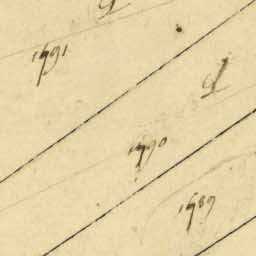 1791
1790
1789